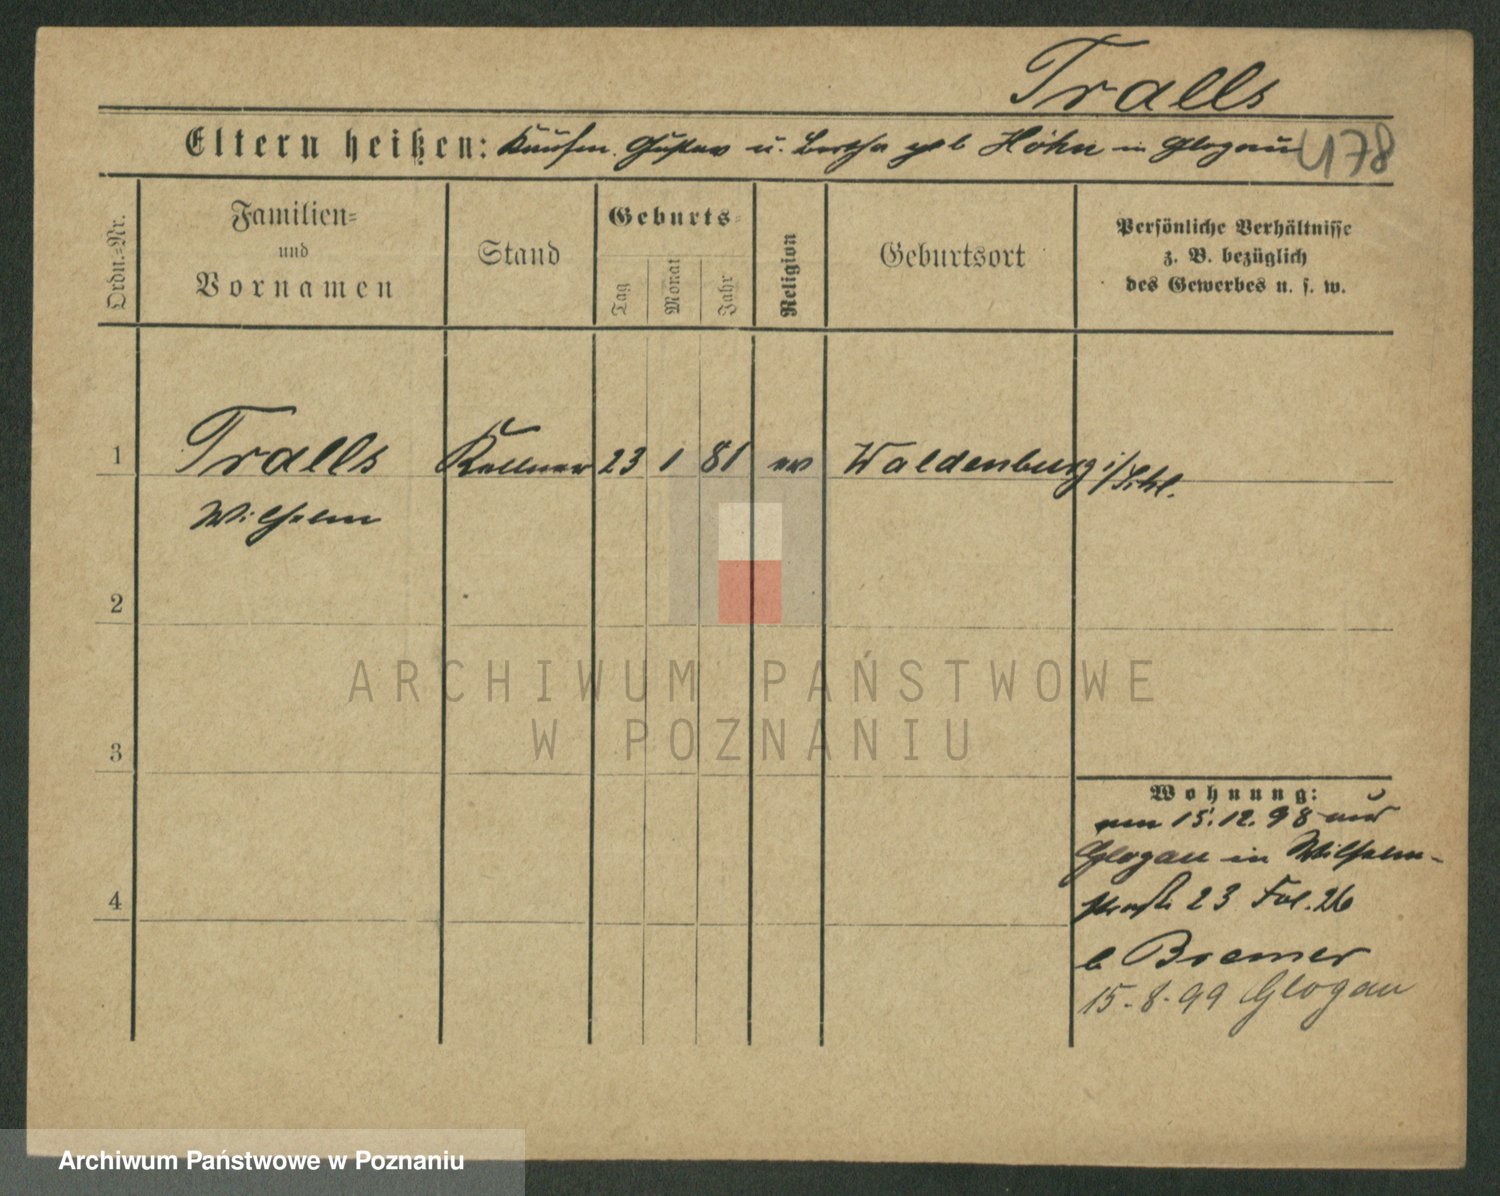 Tralls
Eltern heißen: Kaufm. Gustav u. Bertha geb Höhn in Glogau
478
Ordn.-Nr.
Familien-
und
Vornamen
Stand
Geburts-
Tag
Monat
Jahr
Religion
Geburtsort
Persönliche Verhältnisse
z. B. bezüglich
des Gewerbes u. s. w.
1 Tralls Kellner 23 1 81 ev Waldenburg i/Schl.
Wilhelm
2
ARCHIWUM PAŃSTWOWE
W POZNANIU
3
Wohnung:
am 15.12.98 aus
Glogau in Wilhelm-
straße 23 Fol. 26
4
b Bremer
15-8-99 Glogau
Archiwum Państwowe w Poznaniu